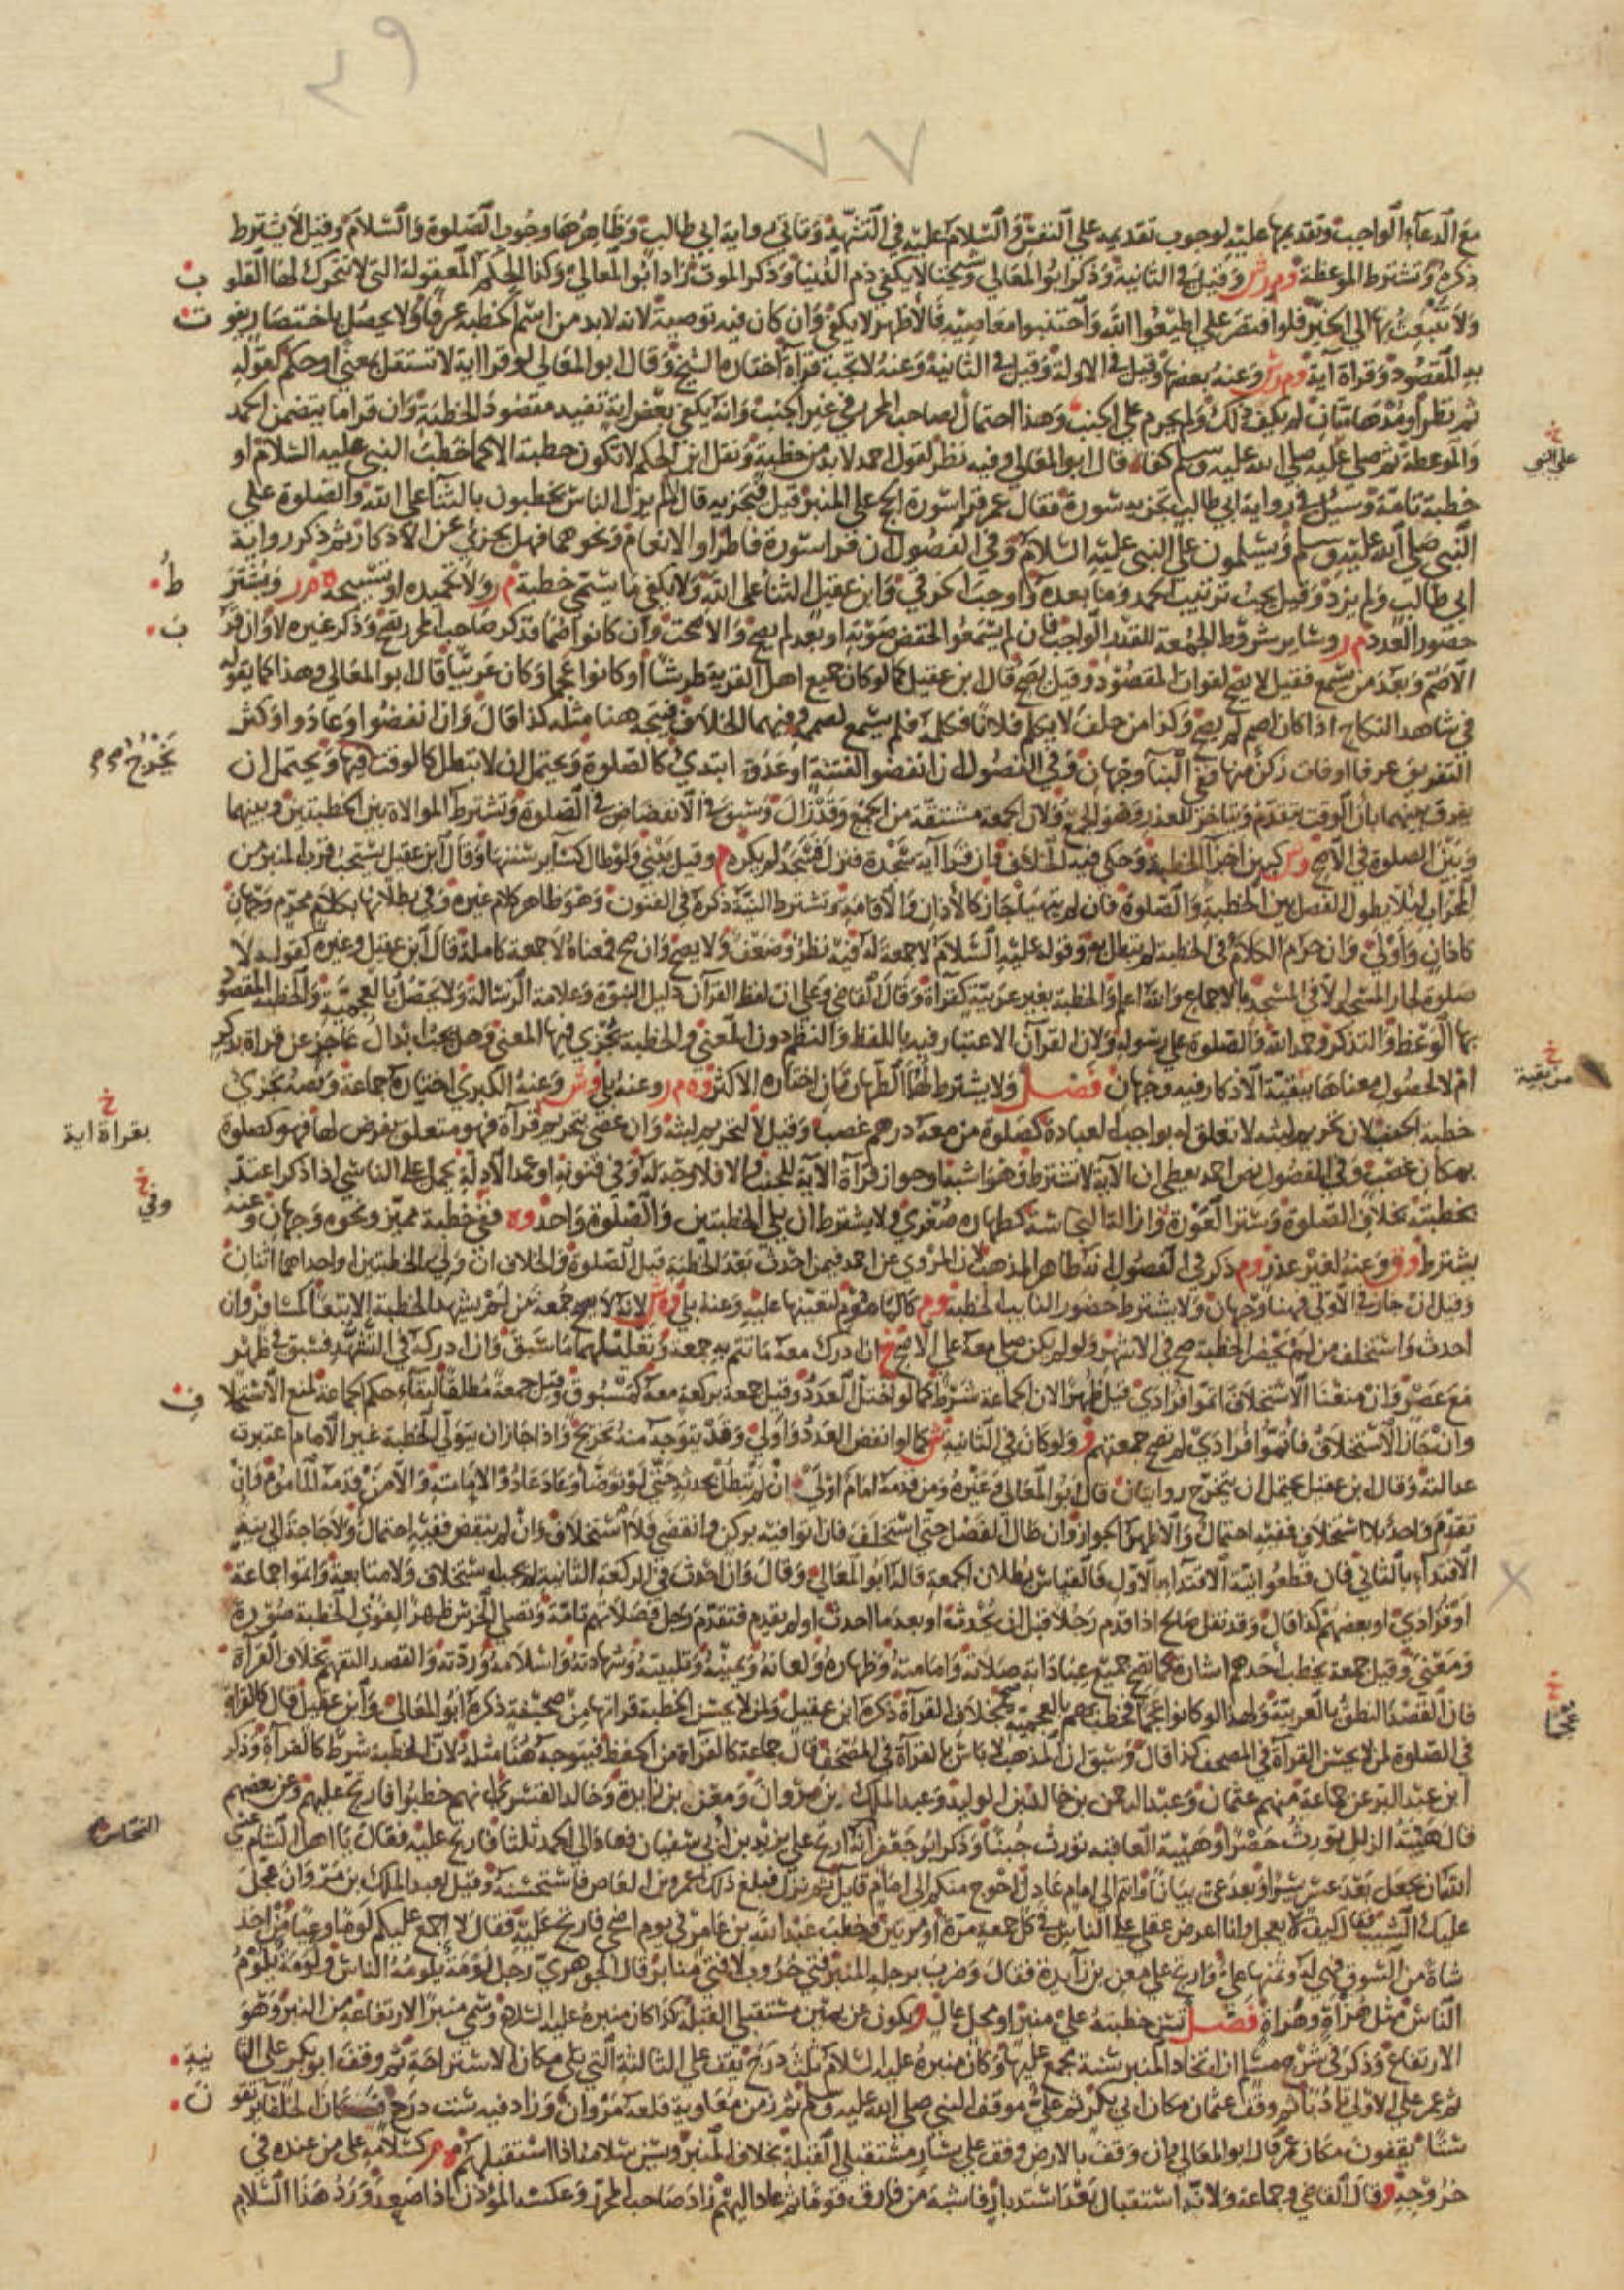 ٧٧
مع الدعاء الواجب وتقديمها عليه لوجوب تقديمه على النفس والسلام عليه في التشهد وتأتي رواية ابي طالب وظاهرها وجوب الصلوة والسلام وقيل لا يشترط
ذكره وتشترط الموعظة وم رش وقيل في الثانية وذكر ابو المعالي وشيخنا لا يكفي ذم الدنيا وذكر الموت زاد ابو المعالي وكذا الحكم المعقولة التي لا تتحرك لها القلو ب
ولا تنبعث بها الى الخير فلو اقتصر على اطيعوا الله واجتنبوا معاصيه فالأظهر لا يكفي وان كان فيه توصية لانه لا بد من اسم الخطبة عرفا ولا يحصل باختصار يفو ت
به المقصود وقراة آية وم رش وعنه بعضها وقيل في الاولة وقيل في الثانية وعنه لا تجب قراة اختاره الشيخ وقال ابو المعالي لو قرا اية لا تستقل بمعنى او حكم كقوله
ثم نظر او مدهامتان لم يكف ذلك ولم يحرم على الجنب وهذا احتمال لصاحب المحرر في غير الجنب وانه يكفي بعض اية تفيد مقصود الخطبة وان قرا ما يتضمن الحمد
والموعظة ثم صلى عليه صلى الله عليه وسلم كفا قال ابو المعالي وفيه نظر لقول احمد لا بد من خطبة ونقل ابن الحكم لا تكون خطبة الا كما خطب النبي عليه السلام او
خطبة تامة وسئل في رواية ابي طالب يجزيه سورة فقال عمر قرا سورة الحج على المنبر قيل فتجزيه قال لا لم يزل الناس يخطبون بالثنا على الله والصلوة على
النبي صلى الله عليه وسلم ويسلمون على النبي عليه السلام وفي الفصول ان قرا سورة فاطر او الانعام ونحوهما فهل يجزئ عن الاذكار ثم ذكر رواية
ابي طالب ولم يزد وقيل يجب ترتيب الحمد وما بعده واوجب الخرقي وابن عقيل الثنا على الله ولا يكفي ما يسمى خطبة م ر ولا تحميده او تسبيحه ه م ر ويشتر ط
حضور العدد م ر وسائر شروط الجمعة للقدر الواجب فان لم يسمعوا الخفض صوته او بعد لم يصح والا صحت وان كانوا صما فذكر صاحب المحرر يصح وذكر غيره لا وان قر ب
الاصم وبعد من يسمع فقيل لا يصح لفوات المقصود وقيل يصح قال ابن عقيل كما لو كان جميع اهل القرية طرشا او كانوا عجما وكان عربيا قال ابو المعالي وهذا كما يقوله
في شاهد النكاح اذا كان اصم لم يصح وكذا من حلف لا يكلم فلانا فكلمه فلم يسمع لصمم وفيهما الخلاف فيتجه هنا مثله كذا قال وان انفضوا وعادوا وكثر
التفريق عرفا او فات ركن منها ففي البنا وجهان وفي الفصول ان انفضوا لفتنة او عدو ابتدئ كالصلوة ويحتمل ان لا تبطل كالوقت فيها ويحتمل ان
يفرق بينهما بان الوقت يتقدم ويتاخر للعذر وهو الجمع ولان الجمعة مشتقة من الجمع وقد زال وسبق في الانفضاض في الصلوة وتشترط الموالاة بين الخطبتين وبينهما
وبين الصلوة في الاصح وش كبين اجزا الخطبة وحكى فيه الخلاف فان قرا آية سجدة فنزل فسجد لم يكره م وقيل يعني ولو طال كسائر سننها وقال ابن عقيل يستحب قرب المنبر من
المحراب لئلا يطول الفصل بين الخطبة والصلوة فان لم يتهيا جاز كالأذان والاقامة وتشترط النية ذكره في الفنون وهو ظاهر كلام غيره وفي بطلانها بكلام محرم وجهان
كاذان واولى وان حرم الكلام في الخطبة لم تبطل به وقوله عليه السلام لا جمعة له فيه نظر وضعف ولا يصح وان صح فمعناه لا جمعة كاملة قال ابن عقيل وغيره كقوله لا
صلوة لجار المسجد الا في المسجد بالاجماع والله اعلم والخطبة بغير عربية كقراة وقال القاضي وعلى ان لفظ القرآن دليل النبوة وعلامة الرسالة ولا يحصل بالعجمية والخطبة المقصود
بها الوعظ والتذكر وحمد الله والصلوة على رسوله ولان القرآن الاعتبار فيه باللفظ والنظم دون المعنى والخطبة يجزي فيها المعنى وهل يجب ابدال عاجز عن قراة بذكر
ام لا لحصول معناها ببقية الاذكار فيه وجهان فصل ولا يشترط لها الطهارتان اختاره الاكثر وه م ر وعنه بلى وش وعنه الكبرى اختاره جماعة ونصه تجزئ
خطبة الجنب لان تحريم لبثه لا تعلق له بواجب العبادة كصلوة من معه درهم غصب وقيل لا لتحريم لبثه وان عصى بتحريم قرآة فهو متعلق بفرض لها فهو كصلوة
بمكان غصب وفي الفصول نص احمد يعطي ان الآية لا تشترط وهو اشبه او جواز قرآة الآية للجنب والا فلا وجه له وفي فنونه او عمد الادلة يحمل على الناسي اذا ذكر اعتد
بخطبته بخلاف الصلوة وستر العورة وازالة النجاسة كطهارة صغرى ولا يشترط ان يلي الخطبتين والصلوة واحد وه ففي خطبة مميز ونحوه وجهان وعنه
يشترط وق وعنه لغير عذر وم ذكر في الفصول انه ظاهر المذهب لان المروي عن احمد فيمن احدث بعد الخطبة قبل الصلوة والخلاف ان ولي الخطبتين او احداهما اثنان
وقيل ان جاز في الاولى فهنا وجهان ولا يشترط حضور النائب الخطبة وم كالماموم لتعينها عليه وعنه بلى وه ش لانه لا يصح جمعة من لم يشهد الخطبة الا تبعا كمسافر وان
احدث واستخلف من لم يحضر الخطبة صح في الاشهر ولو لم يكن صلى معه على الاصح خ ان ادرك معه ما تتم به جمعة وتعليلهما ما سبق وان ادركه في التشهد فسبق في ظهر
مع عصر وان منعنا الاستخلاف اتموا فرادى قيل ظهرا لان الجماعة شرط كما لو اختل العدد وقيل جمعة بركعة معه كمسبوق وقيل جمعة مطلقا لبقاء حكم الجماعة لمنع الاستخلا ف
وان جاز الاستخلاف فاتموا فرادى لم تصح جمعتهم و ولو كان في الثانية ش كما لو انفض العدد واولى وقد يتوجه منه تخريج واذا جاز ان يتولى الخطبة غير الامام اعتبرت
عدالته وقال ابن عقيل يحتمل ان يتخرج روايتان قال ابو المعالي وغيره ومن قدمه امام اولى ان لم تبطل بحدثه حتى لو توضا وعاد عاد والامامته والا من قدمه الماموم فان
تقدم واحد بلا استخلاف ففيه احتمال والاظهر الجواز وان طال الفصل حتى استخلف فان اتوا فيه بركن وانقضى فلا استخلاف وان لم ينقض ففيه احتمال ولا حاجة الى نية
الاقتداء بالثاني فان قطعوا نية الاقتداء بالاول فالقياس بطلان الجمعة قاله ابو المعالي وقال وان احدث في الركعة الثانية لم يجب استخلاف ولا متابعة واتموا جماعة
او فرادى او بعضهم كذا قال وقد نقل صالح اذا قدم رجلا قبل ان يحدثه او بعد ما احدث او لم يقدم فتقدم رجل فصلاتهم تامة وتصلي الخرس ظهرا لفوت الخطبة صورة
ومعنى وقيل جمعة يخطب احدهم اشارة كما تصح جميع عباداته صلاته وامامته وظهاره ولعانه ويمينه وتلبيته وشهادته واسلامه وردته والقصد التفهم بخلاف القراة
فان القصد النطق بالعربية ولهذا لو كانوا عجما فخطبهم بالعجمية صح بخلاف القرآة ذكره ابن عقيل ولمن لا يحسن الخطبة قراتها من صحيفة ذكره ابو المعالي وابن عقيل قال كالقراة
في الصلوة لمن لا يحسن القرآة في المصحف كذا قال وسبق ان المذهب لا باس بالقرآة في المصحف قال جماعة كالقراة من الحفظ فيتوجه هنا مثله لان الخطبة شرط كالقرآة وذكر
ابن عبد البر عن جماعة منهم عثمان وعبد الرحمن بن خالد بن الوليد وعبد الملك بن مروان ومعن بن زايدة وخالد القسري انهم خطبوا فارتج عليهم وعن بعضهم
قال هيبة الزلل تورث حصرا وهيبة العافية تورث جبنا وذكر ابو جعفر انه ارتج على يزيد بن أبي سفيان فعاد الى الحمد ثلثا فارتج عليه فقال يا اهل الشام عسى
الله ان يجعل بعد عسر يسرا وبعد عي بيانا وانتم الى امام عادل احوج منكم الى امام قايل ثم نزل فبلغ ذلك عمرو بن العاص فاستحسنه وقيل لعبد الملك بن مروان عجل
عليك الشيب فقال كيف لا يعجل وانا اعرض عقلي على الناس في كل جمعة مرة او مرتين وخطب عبد الله بن عامر في يوم اضحى فارتج عليه فقال لا اجمع عليكم لوما وعيا من اخذ
شاة من السوق فهي له وثمنها علي وارتج على معن بن زآيدة فقال وضرب برجله المنبر فتى حروب لا فتى منابر قال الجوهري رجل لومة يلومه الناس ولومة يلوم
الناس مثل هزاة وهزاة فصل تسن خطبته على منبر او محل عال و يكون عن يمين مستقبلي القبلة كذا كان منبره عليه السلام وسمي منبرا لارتفاعه من النبر وهو
الارتفاع وذكر في شرح مسلم ان اتخاذ المنبر سنة مجمع عليها وكان منبره عليه السلام ثلث درج يقف على الثالثة التي تلي مكان الاستراحة ثم وقف ابو بكر على الثا نية
ثم عمر على الاولى تادبا ثم وقف عثمان مكان ابي بكر ثم علي موقف النبي صلى الله عليه وسلم ثم زمن معاوية قلعه مروان وزاد فيه ست درج فكان الخلفا يرتقو ن
ستا يقفون مكان عمر قال ابو المعالي وان وقف بالارض وقف على يسار مستقبلي القبلة بخلاف المنبر ويسن سلامه اذا استقبلهم ه م ر كسلامه على من عنده في
خروجه و قال القاضي وجماعة ولانه استقبال بعد استدبار فاشبه من فارق قوما ثم عاد اليهم زاد صاحب المحرر وعكسه المؤذن اذا صعد ورد هذا السلام
خ على النبي
خ من بقية
خ بقراة اية
خ وفي
عجما